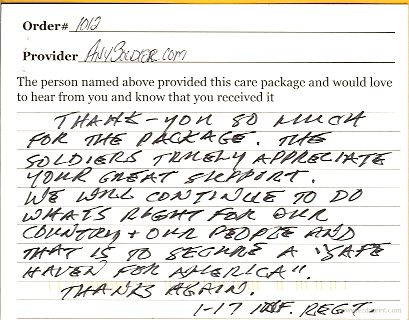 Order# 1012
Provider AnySoldier.com
The person named above provided this care package and would love
to hear from you and know that you received it
THANK-YOU SO MUCH
FOR THE PACKAGE. THE
SOLDIERS TRUELY APPRECIATE
YOUR GREAT SUPPORT.
WE WILL CONTINUE TO DO
WHATS RIGHT FOR OUR
COUNTRY + OUR PEOPLE AND
THAT IS TO SECURE A "SAFE
HAVEN FOR AMERICA".
THANKS AGAIN.
1-17 INF. REGT